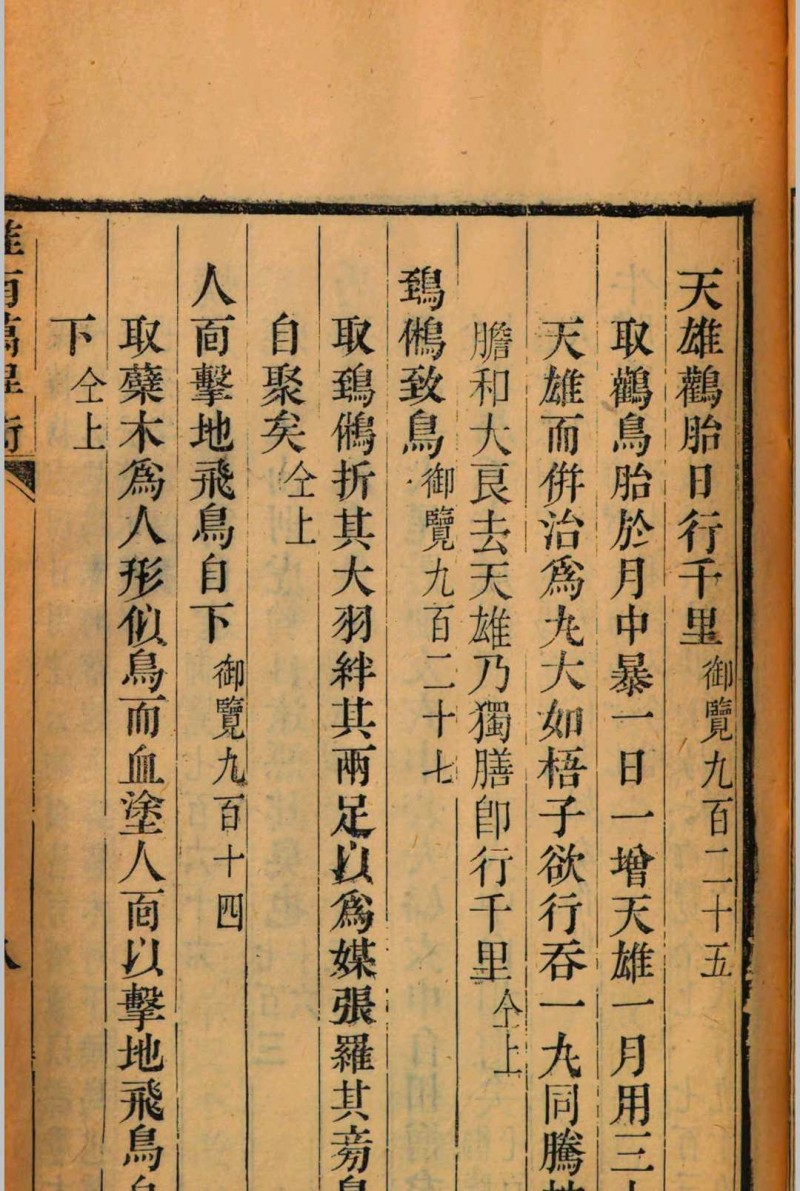 天雄鸛胎日行千里御覽九百二十五
取鸛鳥胎於月中暴一日一增天雄一月用三
天雄而併治爲丸大如梧子欲行吞一丸同騰
膽和大良去天雄乃獨膳卽行千里仝上
鵄鵂致鳥御覽九百二十七
取鵄鵂折其大羽絆其兩足以爲媒張羅其旁
自聚矣仝上
人面擊地飛鳥自下御覽九百十四
取蘗木爲人形似鳥而血塗人面以擊地飛鳥自
下仝上
淮南萬畢術
八